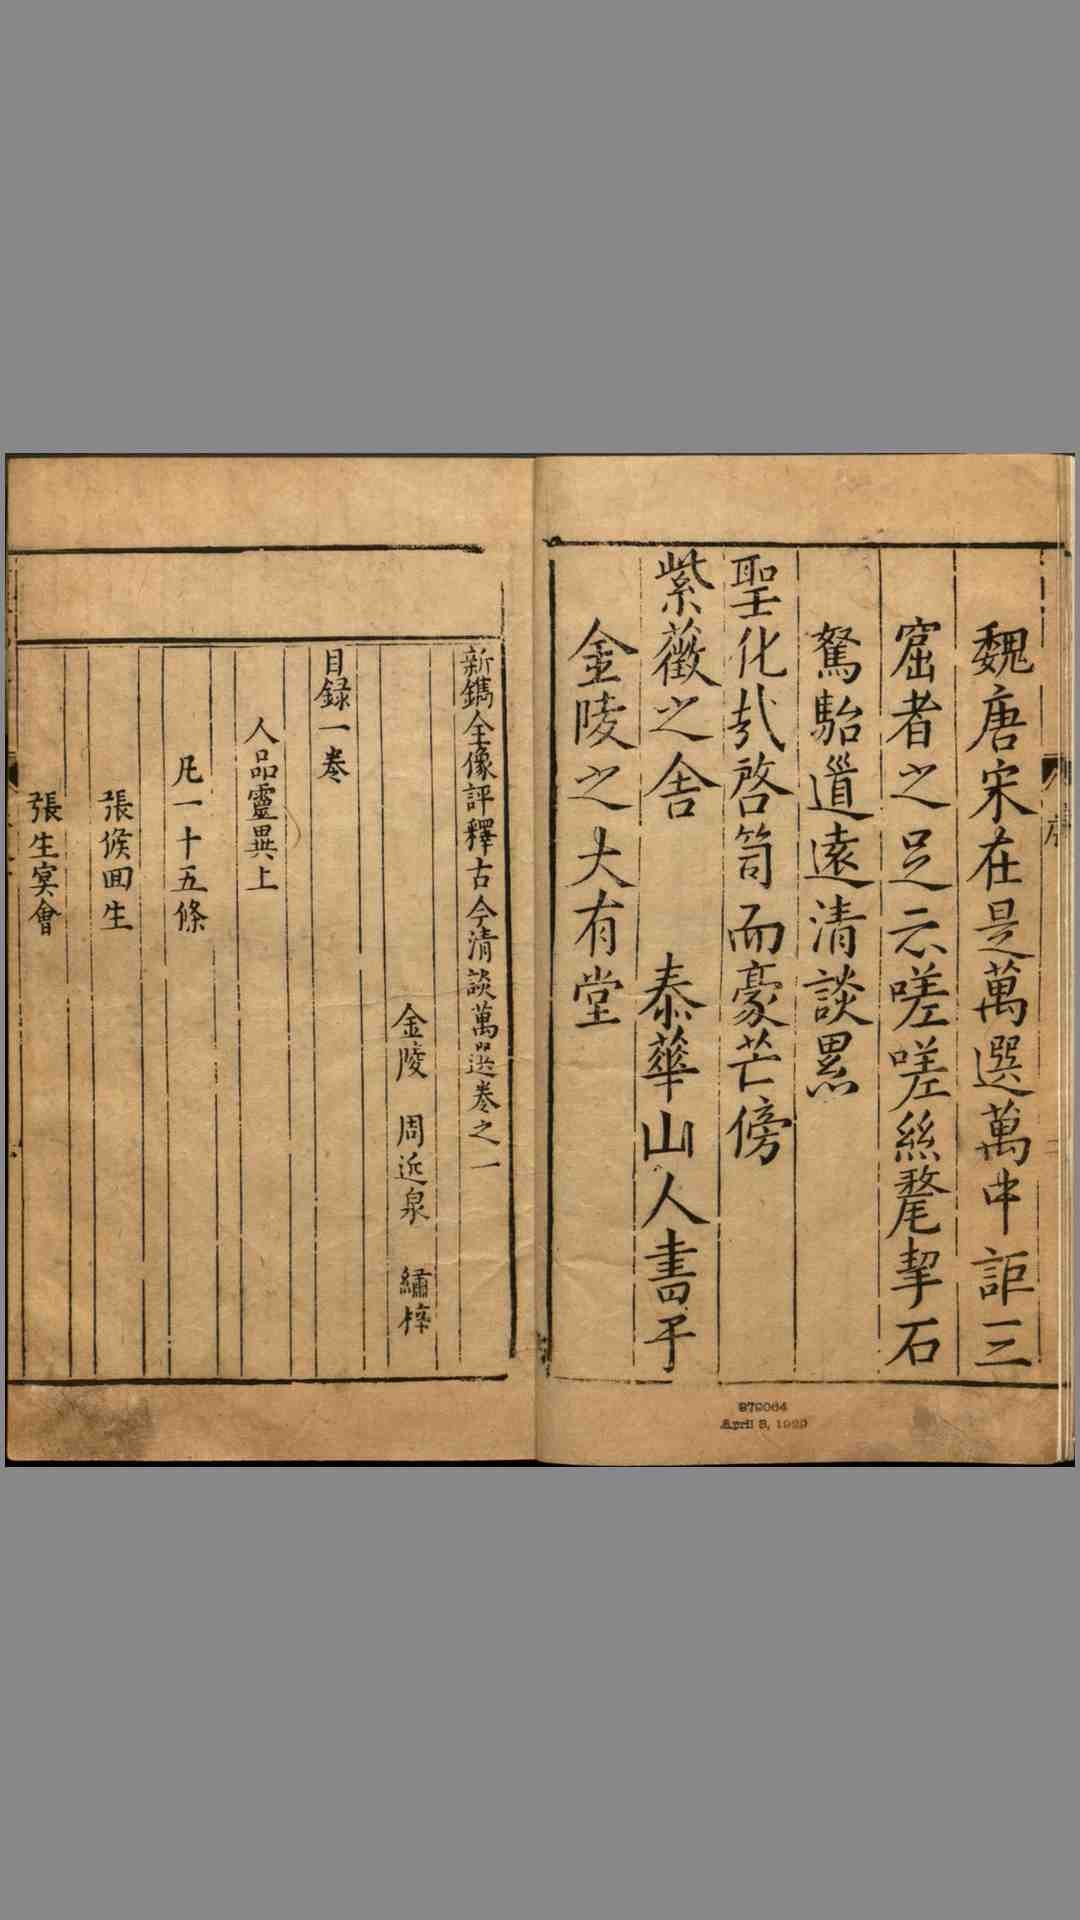 魏唐宋在是萬選萬中詎三
窟者之足云嗟嗟絲氂挈石
駑駘道遠清談累
聖化哉啓笥而豪芒傍
紫薇之舍 泰華山人書于
金陵之大有堂
序
979064
April 3, 1929
新鐫全像評釋古今清談萬選卷之一
金陵 周近泉 繡梓
目録一卷
人品靈異上
凡一十五條
張候回生
張生冥會